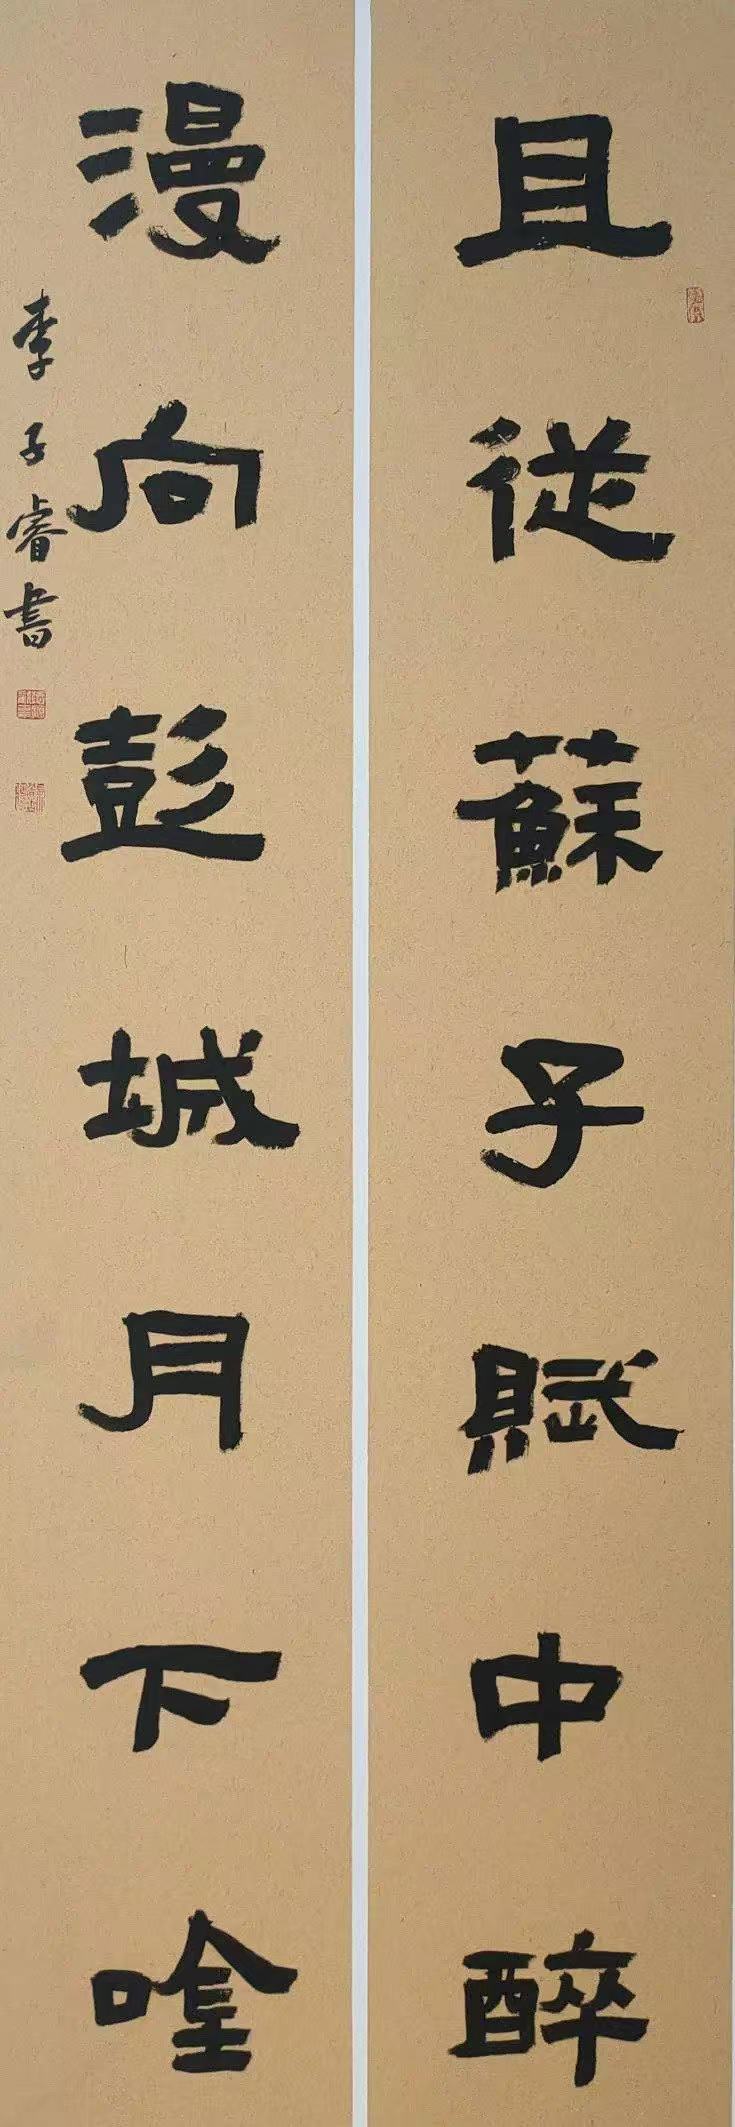 且從蘇子賦中醉
漫向彭城月下唫
李子睿書